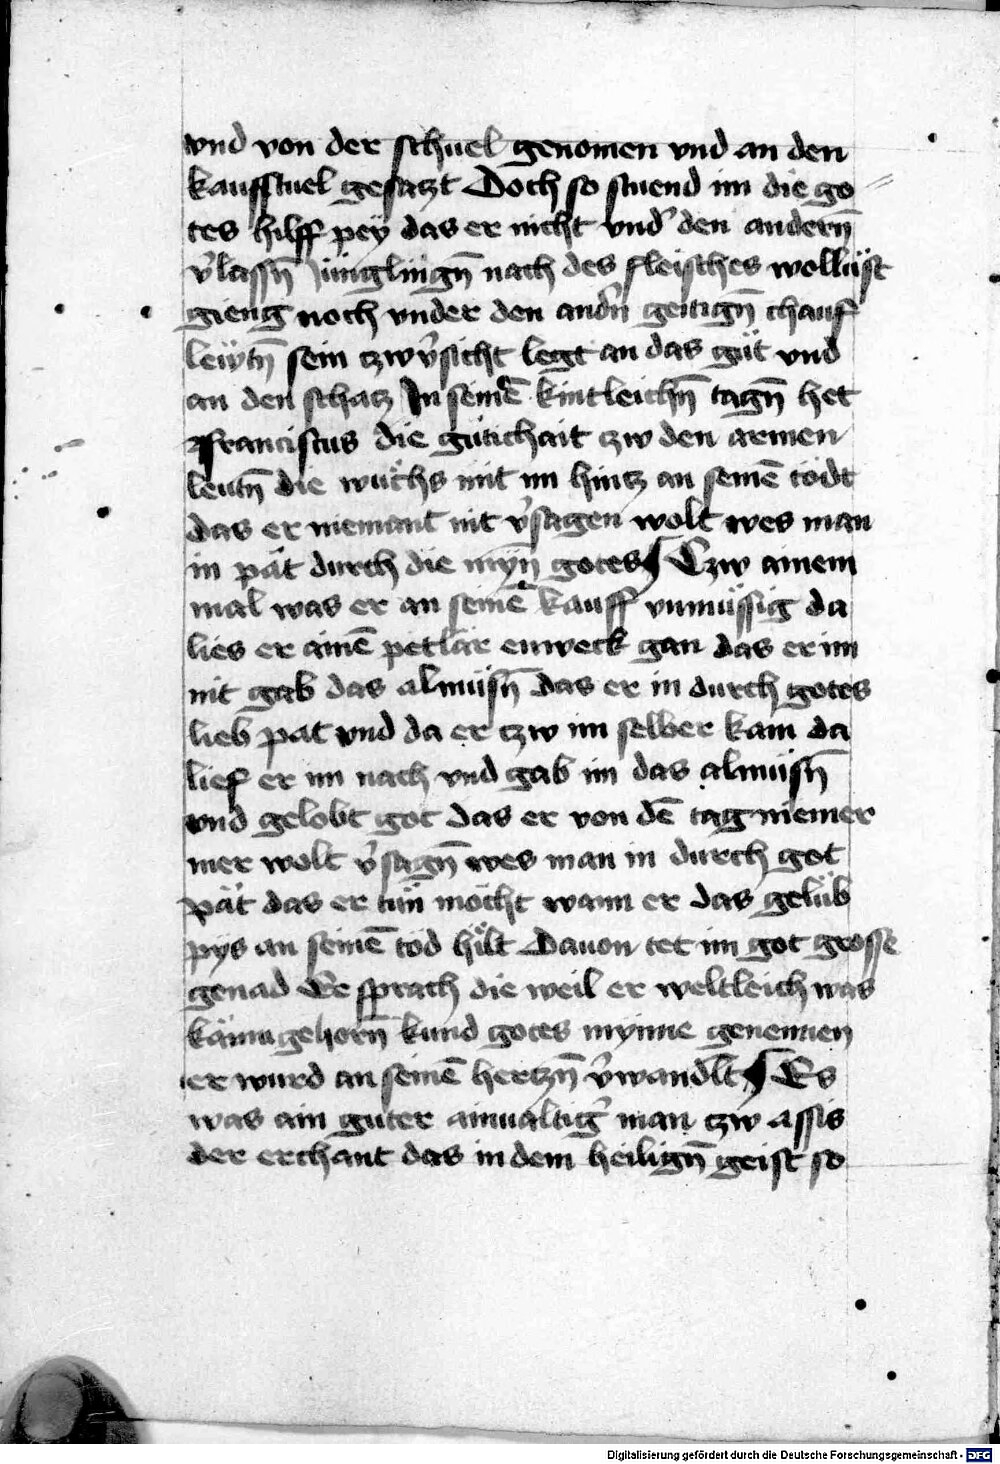 vnd von der schuel genomen vnd an den
kaufstuel gesatzt Doch so stuend im die go
tes hilff pey das er nicht vnd' den andern̄
v'lassn̄ Jünglingn̄ nach des fleisches wollüst
gieng noch vnder den and'n geitign̄ chauf
leẅtn̄ sein tzwv'sicht legt an das güt vnd
an den schatz In seinē kintleichn̄ tagn̄ het
franciscus die gütichait tzw den armen
leutn̄ die wuͦchs mit im hintz an seinē tödt
das er niemant nit v'sagen wolt wes man
in pät durch die myn̄ gotes Tzw ainem
mal was er an seinē kauff vnmüssig da
lies er ainē petlär enweck gan das er im
nit gab das almüsn̄ das er in durch gotes
lieb pat vnd da er tzw im selber kam da
lief er im nach vnd gab im das almüsn̄
vnd gelobt got das er von dē tag niemer
mer wolt v'sagn̄ wes man in durch got
pät das er tün möcht wann er das gelüb
pys an seinē töd hilt Dauon tet im got grosse
genad Er sprach die weil er weltleich was
käm gehorn̄ kund gotes mynne genennen
er wurd an seinē hertzn̄ v'wandlt Es
was ain guter ainualtig' man tzw assis
der erchant das in dem heilign̄ geist so
Digitalisierung gefördert durch die Deutsche Forschungsgemeinschaft - DFG